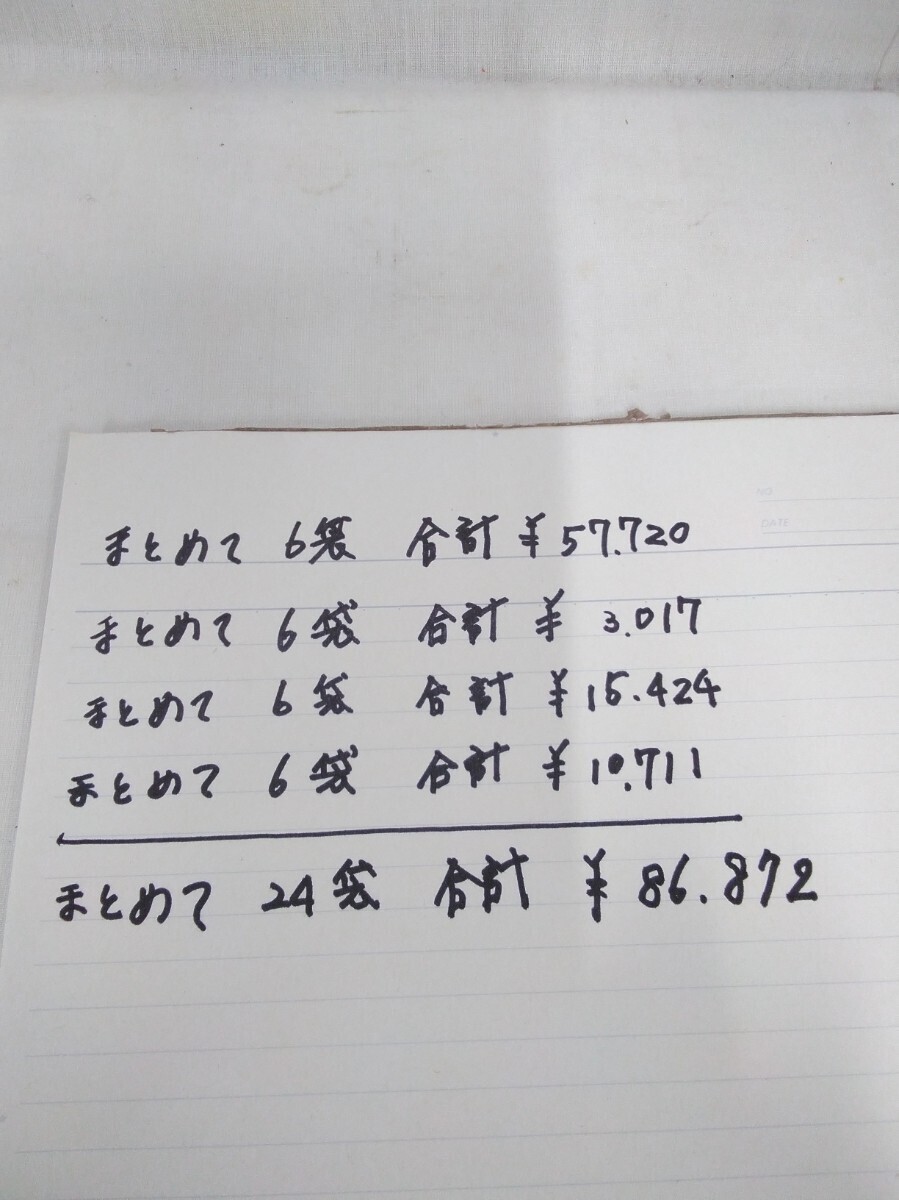 NO
DATE
まとめて 6袋 合計 ¥57.720
まとめて 6袋 合計 ¥ 3.017
まとめて 6袋 合計 ¥15.424
まとめて 6袋 合計 ¥10.711
まとめて 24袋 合計 ¥86.872